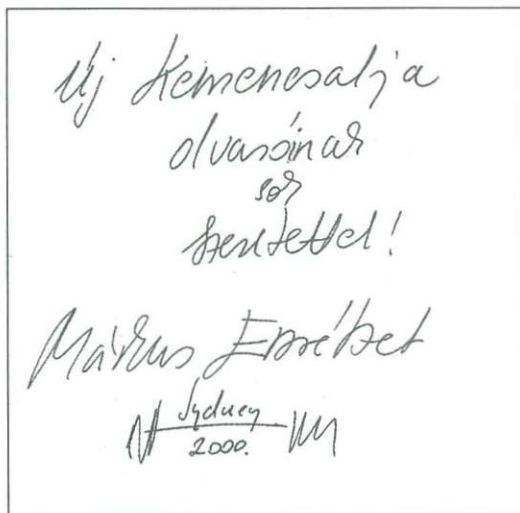 Új Kemenesalja
olvasóinak
sok
szeretettel!
Márkus Erzsébet
Sydney
2000.